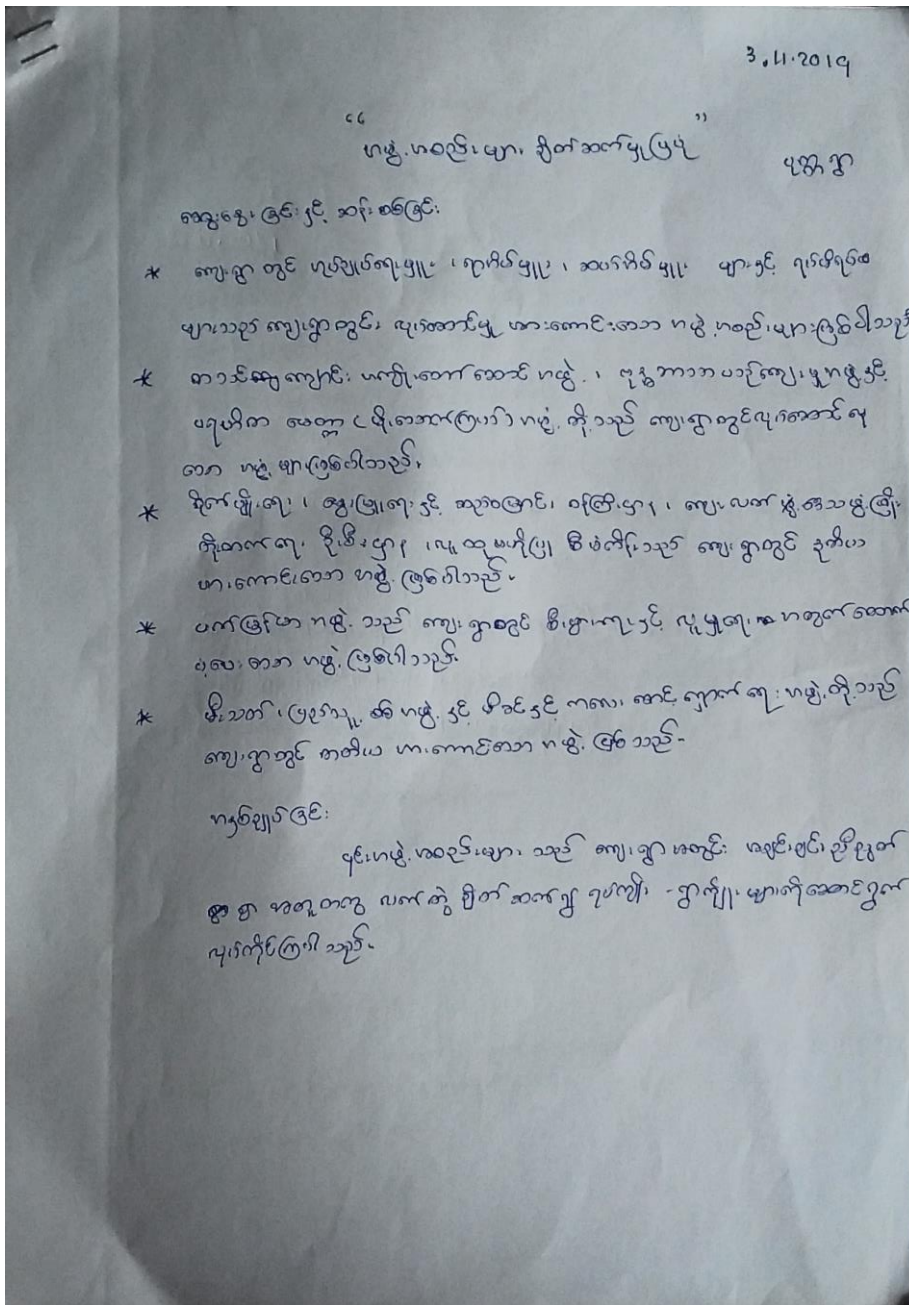 3.11.2019
“အဖွဲ့အစည်းများ ချိတ်ဆက်မှုပြပုံ”
ပုတ္တရွာ
ဆွေးနွေးခြင်းနှင့် ဆန်းစစ်ခြင်း
* ကျေးရွာတွင် အုပ်ချုပ်ရေးမှူး ၊ ရာအိမ်မှူး ၊ ဆယ်အိမ်မှူး များနှင့် ရပ်မိရပ်ဖ
များသည် ကျေးရွာတွင်း လှုပ်ဆောင်မှု အားကောင်းသော အဖွဲ့အစည်းများဖြစ်ပါသည်
* စာသင်ကျောင်း အကျိုးတော်ဆောင်အဖွဲ့ ၊ ဗုဒ္ဓဘာသာ ယဉ်ကျေးမှုအဖွဲ့နှင့်
ပရဟိတ မေတ္တာ အဖွဲ့ တို့သည် ကျေးရွာတွင်လှုပ်ဆောင်နေ
သော အဖွဲ့များဖြစ်ပါသည်။
* စိုက်ပျိုးရေး ၊ မွေးမြူရေးနှင့် ဆည်မြောင်း ဝန်ကြီးဌာန ၊ ကျေးလက်ဖွံ့ဖြိုး
တိုးတက်ရေး ဦးစီးဌာန ၊ လူထုဗဟိုပြု စီမံကိန်းသည် ကျေးရွာတွင် ဒုတိယ
အားကောင်းသော အဖွဲ့ဖြစ်ပါသည်။
* ပက်မြန်မာ အဖွဲ့သည် ကျေးရွာတွင် စီးပွားရေးနှင့် လူမှုရေး အတွက် ထောက်
ပံ့ပေးသော အဖွဲ့ဖြစ်ပါသည်။
* မီးသတ် ၊ ပြည်သူ့စစ်အဖွဲ့နှင့် မိခင်နှင့် ကလေး စောင့်ရှောက်ရေး အဖွဲ့တို့သည်
ကျေးရွာတွင် တတိယ အားကောင်းသော အဖွဲ့ဖြစ်သည်။
အနှစ်ချုပ်ခြင်း
၎င်းအဖွဲ့အစည်းများ သည် ကျေးရွာအတွင်း အချင်းချင်း ညီညွတ်
စွာ အတူတကွ လက်တွဲ ချိတ်ဆက်၍ ရပ်ကျိုး - ရွာကျိုးများကိုဆောင်ရွက်
လုပ်ကိုင်ကြပါသည်။